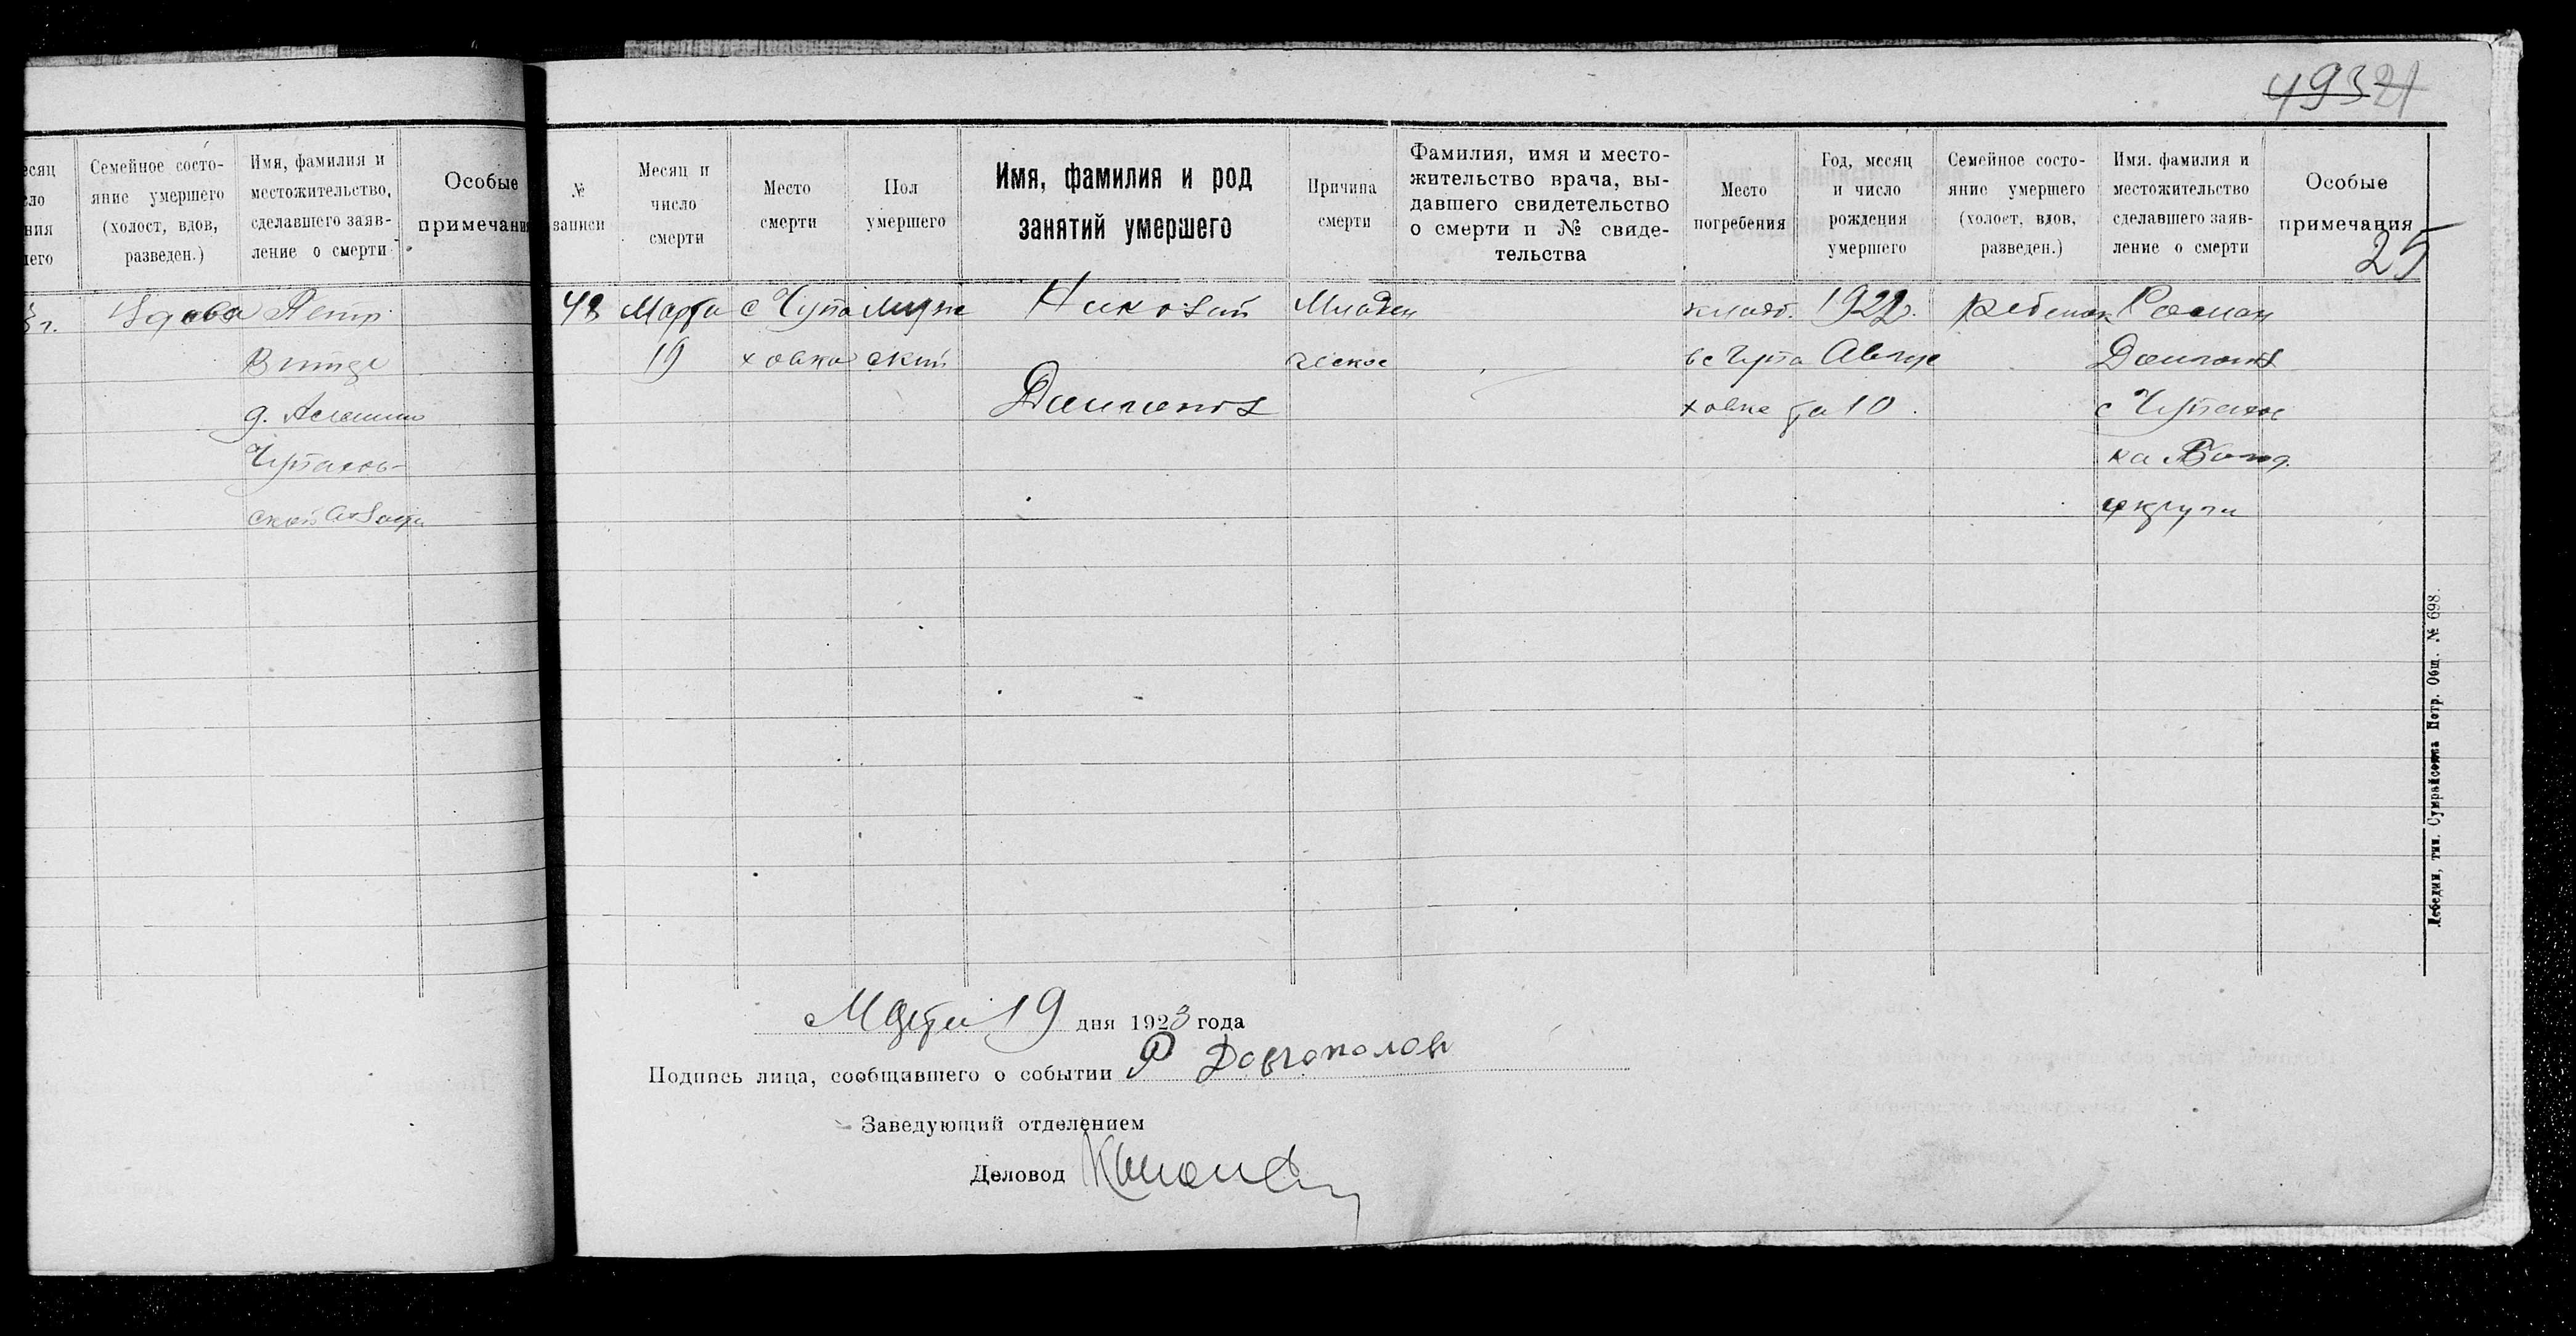 49321
есяц
ло
ния
его
Семейное состо-
яние умершего
(холост, вдов,
разведен.)
Имя, фамилия и
местожительство,
сделавшего заяв-
ление о смерти
Особые
примечани
3 г.
Вдова
Петр
д.
Чупахов-
ской
№
записи
Месяц и
число
смерти
Место
смерти
Пол
умершего
Имя, фамилия и род
занятий умершего
Причина
смерти
Фамилия, имя и место-
жительство врача, вы-
давшего свидетельство
о смерти и № свиде-
тельства
Место
погребения
Год, месяц
и число
рождения
умершего
Семейное состо-
яние умершего
(холост, вдов,
разведен.)
Имя. фамилия и
местожительство
сделавшего заяв-
ление о смерти
Особые
примечания
25
48
Марта
19
с Чупа
ховка
мужс
ской
Николай
Младен
ческое
кладб.
в с Чупа
ховке
1922г.
Авгус
та 10
Ребенок
Роман
с Чупахов
ка
округи
Марта 19 дня 1923 года
Подпись лица, сообщившего о событии Р Довгополов
Заведующий отделением
Деловод
Лебедин, тип. Сумрайсоюза Потр. Общ. № 698.